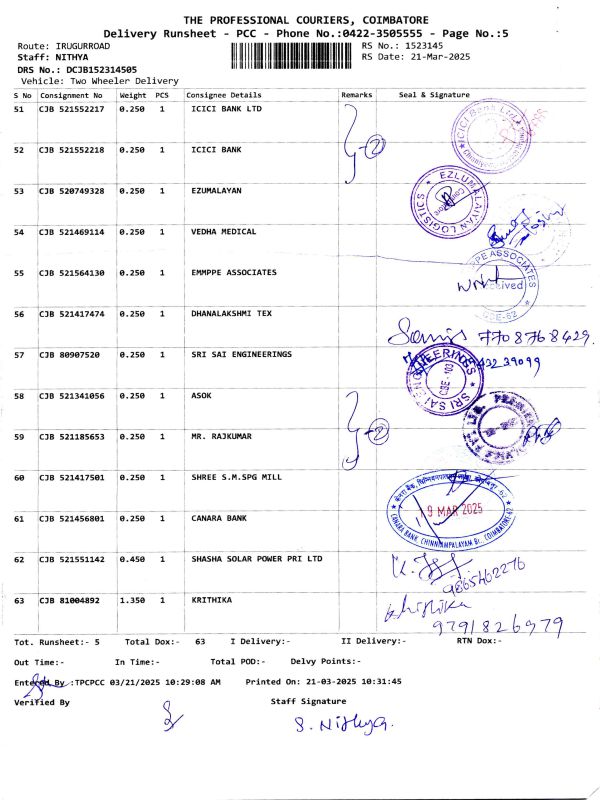 THE PROFESSIONAL COURIERS, COIMBATORE
Delivery Runsheet - PCC - Phone No.:0422-3505555 - Page No.:5
Route: IRUGURROAD RS No.: 1523145
Staff: NITHYA RS Date: 21-Mar-2025
DRS No.: DCJB152314505
Vehicle: Two Wheeler Delivery
S No Consignment No Weight PCS Consignee Details Remarks Seal & Signature
51 CJB 521552217 0.250 1 ICICI BANK LTD
ICICI Bank Ltd
52 CJB 521552218 0.250 1 ICICI BANK
2
53 CJB 520749328 0.250 1 EZUMALAYAN
EZLUMALAIYAN LOGISTICS
54 CJB 521469114 0.250 1 VEDHA MEDICAL
55 CJB 521564130 0.250 1 EMMPPE ASSOCIATES
PPE ASSOCIATES
Received
CBE-62
56 CJB 521417474 0.250 1 DHANALAKSHMI TEX
7708768429
57 CJB 80907520 0.250 1 SRI SAI ENGINEERINGS
43239099
SRI SAI ENGINEERINGS
CBE - 103
58 CJB 521341056 0.250 1 ASOK
59 CJB 521185653 0.250 1 MR. RAJKUMAR
2
60 CJB 521417501 0.250 1 SHREE S.M.SPG MILL
61 CJB 521456801 0.250 1 CANARA BANK
9 MAR 2025
CANARA BANK, CHINNIAMPALAYAM Br. COIMBATORE-62
62 CJB 521551142 0.450 1 SHASHA SOLAR POWER PRI LTD
9865462276
63 CJB 81004892 1.350 1 KRITHIKA
Khithika
9791826979
Tot. Runsheet:- 5 Total Dox:- 63 I Delivery:- II Delivery:- RTN Dox:-
Out Time:- In Time:- Total POD:- Delvy Points:-
Entered By :TPCPCC 03/21/2025 10:29:08 AM Printed On: 21-03-2025 10:31:45
Verified By Staff Signature
S. Nithya.